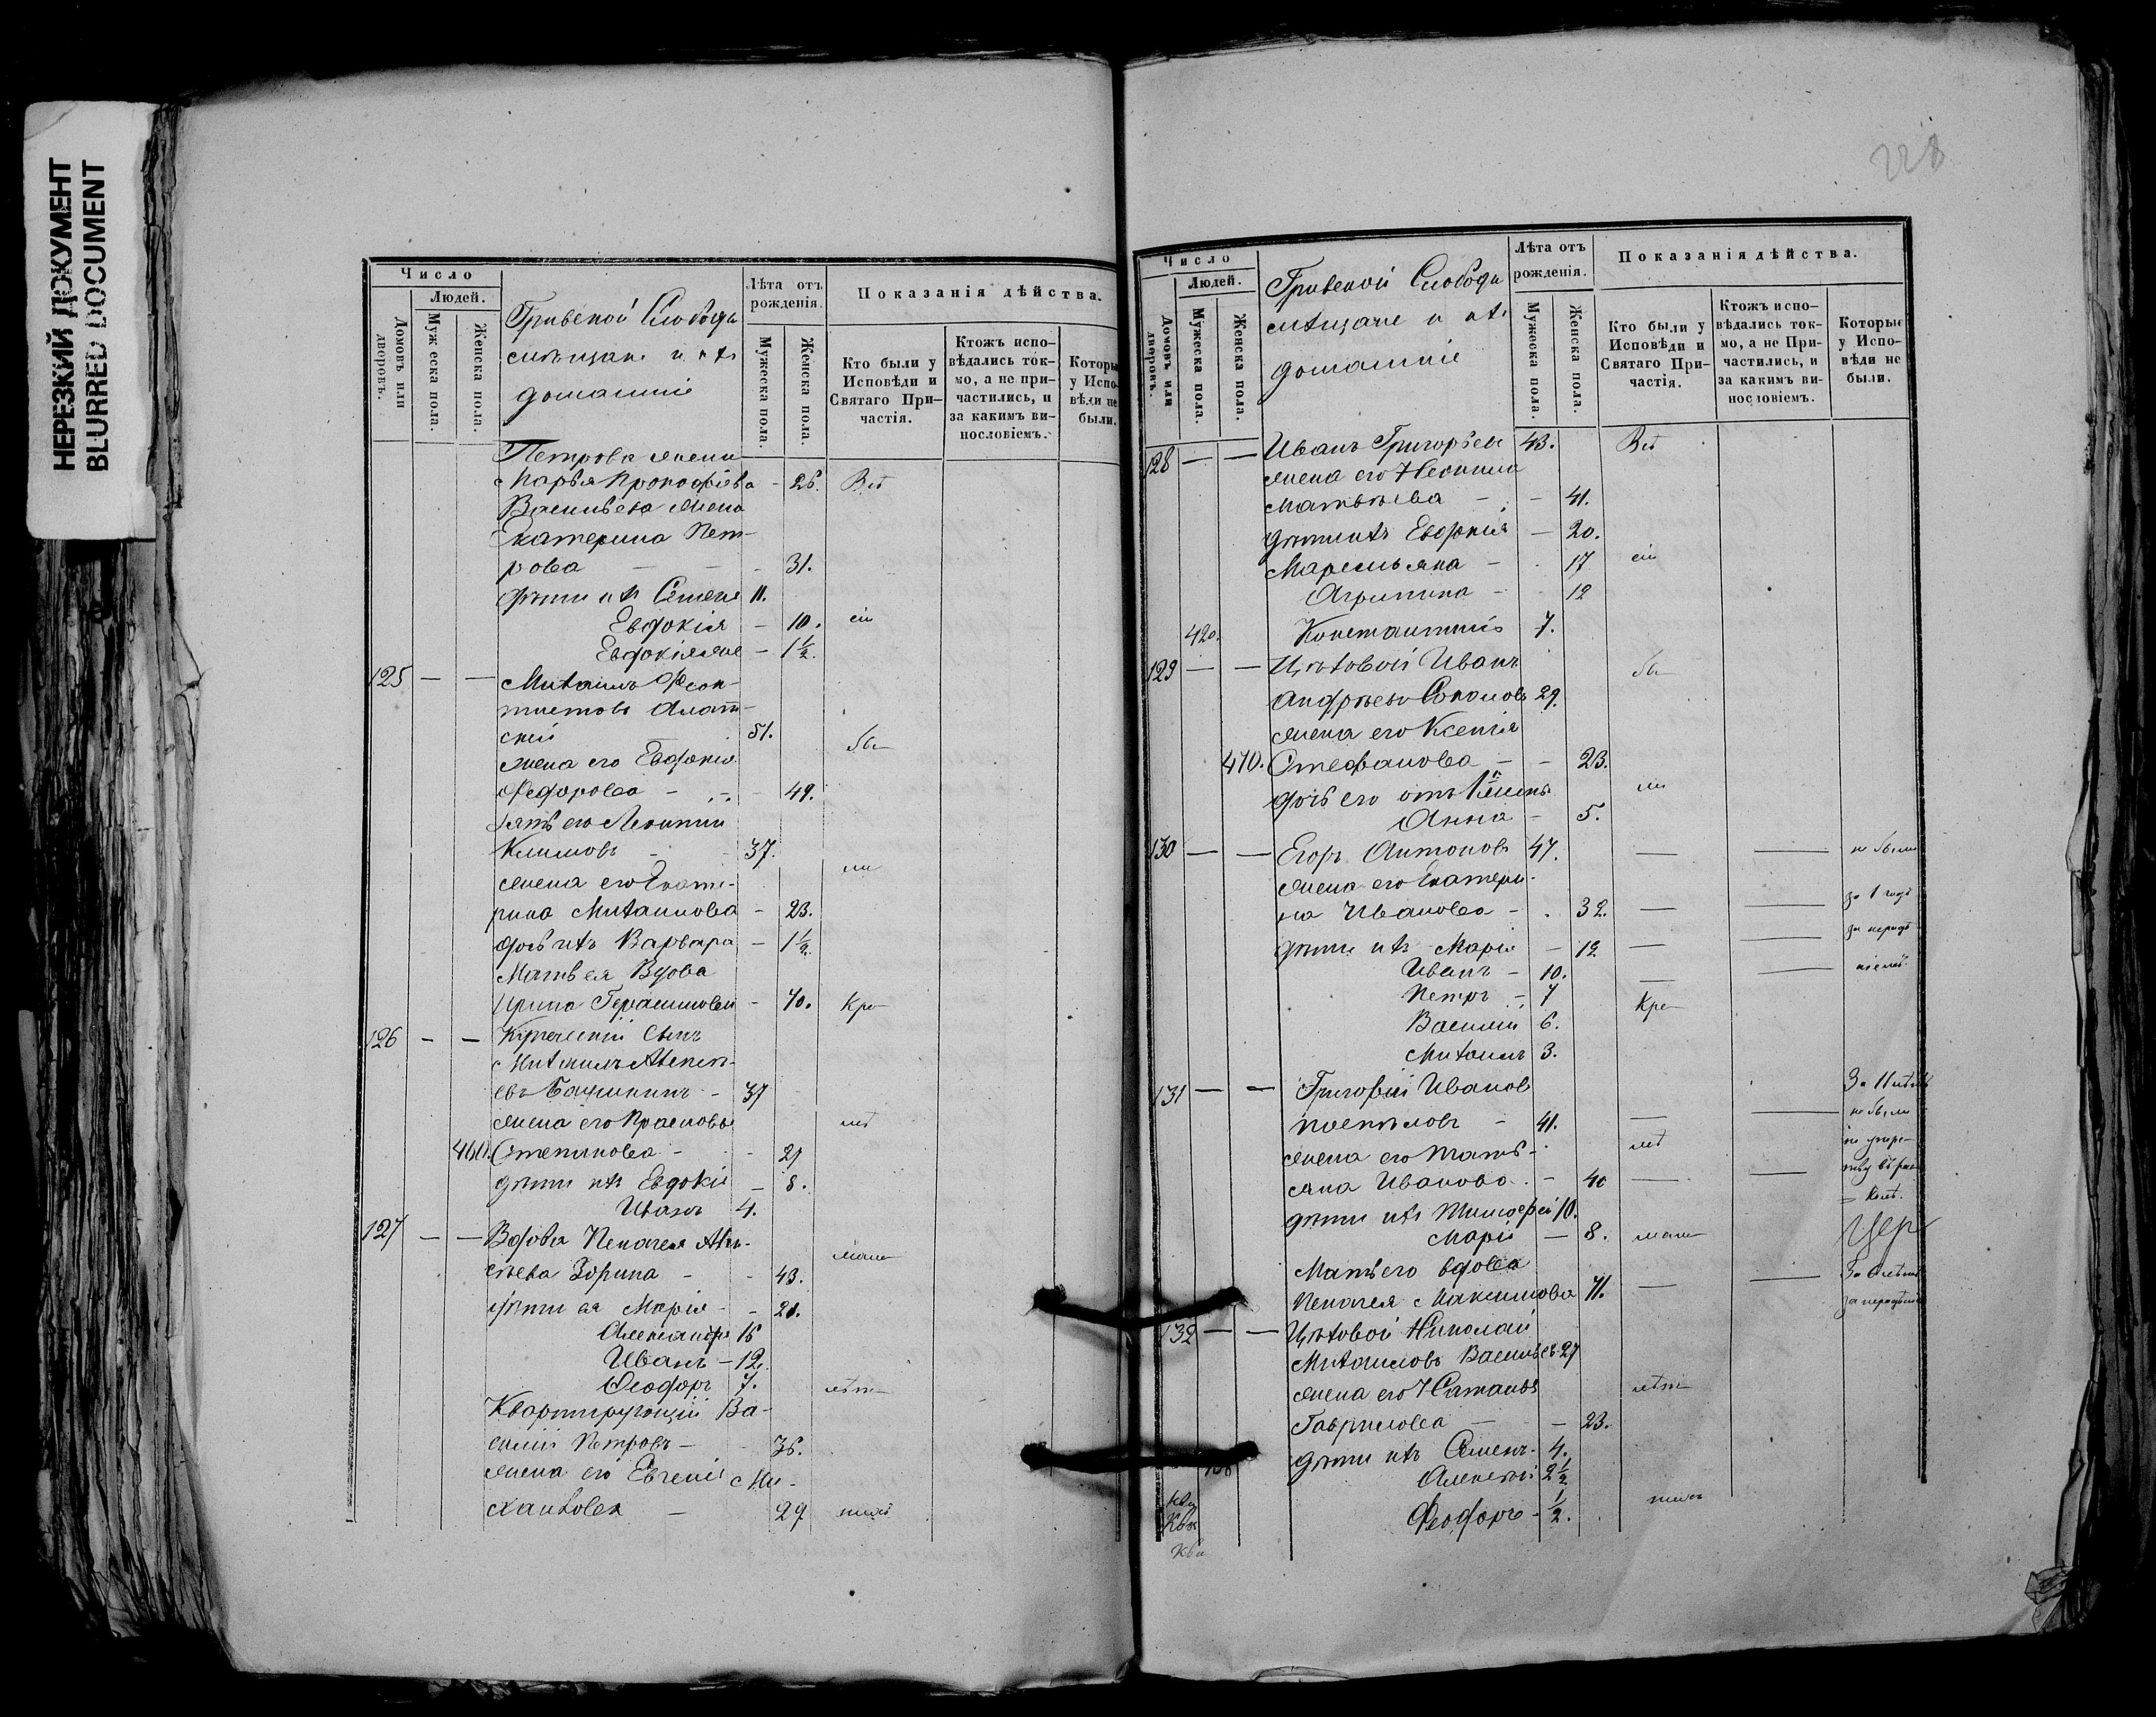 НЕРЕЗКИЙ ДОКУМЕНТ
BLURRED DOCUMENT
Число
Людей.
Домовъ или дворовъ.
Мужеска пола.
Женска пола.
Гривской Слободы
мѣщане и ихъ
домашніе
Лѣта отъ рожденія.
Мужеска пола.
Женска пола.
Показанія дѣйства.
Кто были у Исповѣди и Святаго Причастія.
Ктожъ исповѣдались токмо, а не причастились, и за какимъ винословіемъ.
Которые у Исповѣди не были.
Петрова жена
Марья Прокофьева - 26. Всѣ
Васильева жена
Екатерина Пет-
рова - - - 31.
дѣти ихъ Семенъ 11.
Евдокія - 10. сіи
Евдокія же - 1½.
125 — — Михаилъ Феок-
тистовъ
скій 51.
жена его Евдокія бы-
Федорова - 49.
зять его Леонтій
Климовъ - 37.
жена его Екате- ли
рина Михаилова - 23.
дочь ихъ Варвара - 1½.
Матвея Вдова
Ирина Герасимова - 70. Кро-
126 - — Купеческій сынъ
Михаилъ Алексѣ-
евъ - 37
жена его Прасковья мѣ
460. Степанова - - 29
дѣти ихъ Евдокія - 8.
Иванъ 4.
127 — — Вдова Пелагея Алек-
сѣева Зорина - - 43. мало-
дѣти ея Марія - - 20.
Александръ 16
Иванъ - 12.
Феодоръ 7. лѣт-
Квартирующій Ва-
силій Петровъ - 36.
жена его Евгенія Ми-
хаилова - 29 нихъ
228
Число
Людей.
Домовъ или дворовъ.
Мужеска пола.
Женска пола.
Гривской Слободы
мѣщане и ихъ
домашніе
Лѣта отъ рожденія.
Мужеска пола.
Женска пола.
Показанія дѣйства.
Кто были у Исповѣди и Святаго Причастія.
Ктожъ исповѣдались токмо, а не Причастились, и за какимъ винословіемъ.
Которые у Исповѣди не были.
128 — — Иванъ Григорьевъ 43. Всѣ
жена его Неонила
Матвѣева - - 41.
дѣти ихъ Евдокія — 20.
Маремьяна - 17 сіи
Агрипина - 12
420. Константинъ 7.
129 — — Цѣховой Иванъ бы-
Андреевъ Соколовъ 29.
жена его Ксенія
470. Стефанова - - 23.
дочь его отъ 1й жены ли
Анна - 5.
130 — — Егоръ Антоновъ 47. — — не были
жена его Екатери-
на Иванова - 32. — за 1 годъ
дѣти ихъ Марія — 12 — —
Иванъ - 10. — —
Петръ - 7
Василій 6. Кро-
Михаилъ 3.
131 — — Григорій Ивановъ
- 41. — — не были
жена его Татья- мѣ
яна Иванова - 40 — —
дѣти ихъ Тимофей 10.
Марія — 8. мало-
Мать его вдова
Пелагея Максимова 71. — —
132 — — Цѣховой Николай
Михаиловъ Васильевъ 27
жена его Наталья лѣт-
Гаврилова - - 23.
дѣти ихъ Семенъ - 4.
Алексѣй 2½
Феодоръ - ½. нихъ